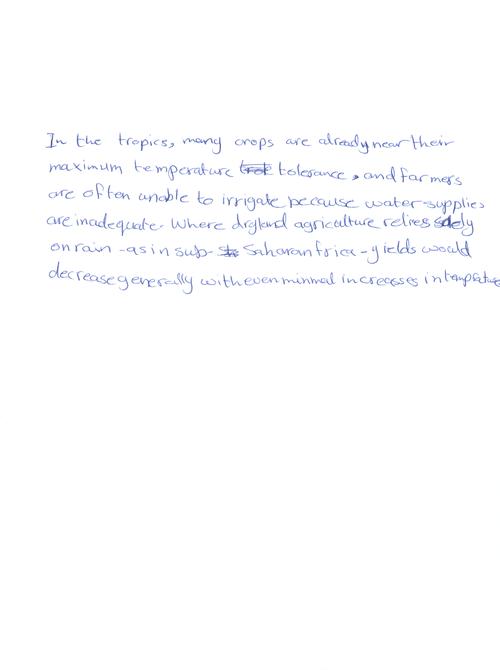 In the tropics, many crops are already near their
maximum temperature tolerance, and farmers
are often unable to irrigate because water-supplies
are inadequate. Where dryland agriculture relies solely
on rain - as in sub- Saharan frica - yields would
decrease generally with even minmal increases in temprature